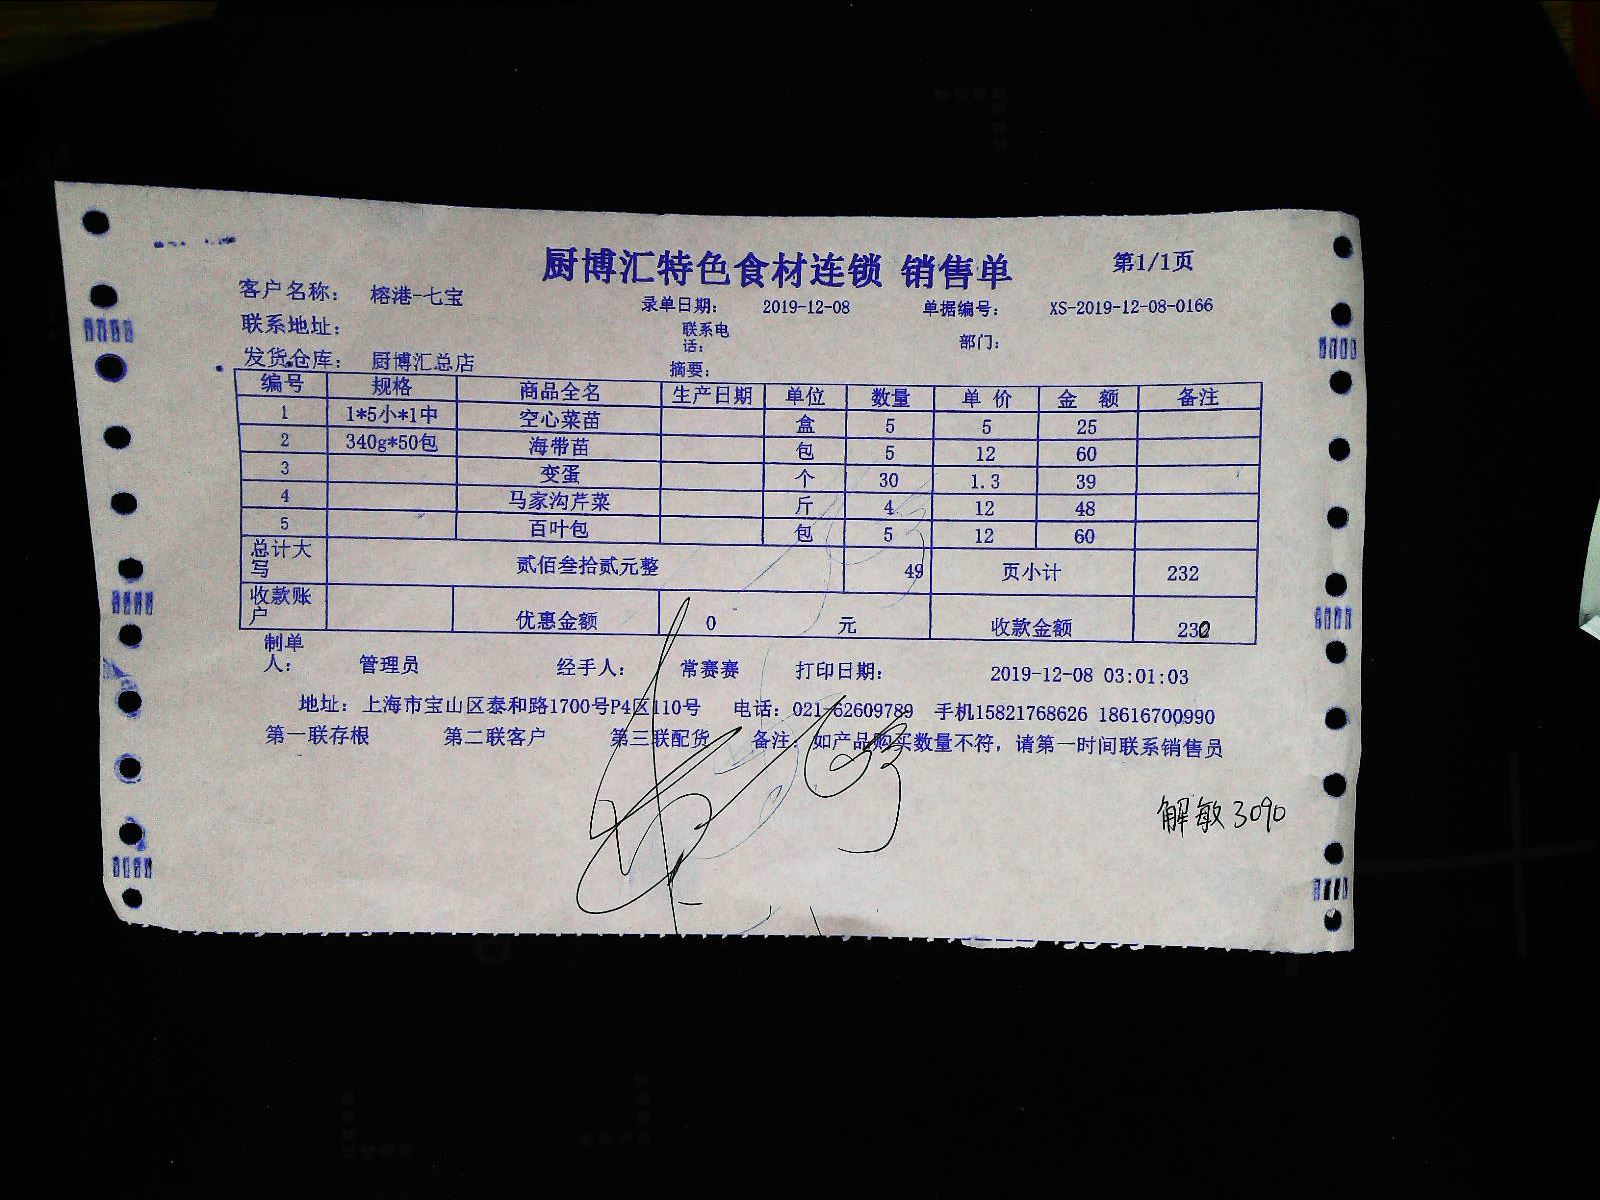 厨博汇特色食材连锁 销售单 第1/1页
客户名称： 榕港-七宝 录单日期： 2019-12-08 单据编号： XS-2019-12-08-0166
联系地址： 联系电话： 部门：
发货仓库： 厨博汇总店 摘要：
编号 规格 商品全名 生产日期 单位 数量 单价 金额 备注
1 1*5小*1中 空心菜苗 盒 5 5 25
2 340g*50包 海带苗 包 5 12 60
3 变蛋 个 30 1.3 39
4 马家沟芹菜 斤 4 12 48
5 百叶包 包 5 12 60
总计大写 贰佰叁拾贰元整 49 页小计 232
收款账户 优惠金额 0 元 收款金额 230
制单人： 管理员 经手人： 常赛赛 打印日期： 2019-12-08 03:01:03
地址：上海市宝山区泰和路1700号P4区110号 电话：021-62609789 手机15821768626 18616700990
第一联存根 第二联客户 第三联配货 备注：如产品购买数量不符，请第一时间联系销售员
解敏3090